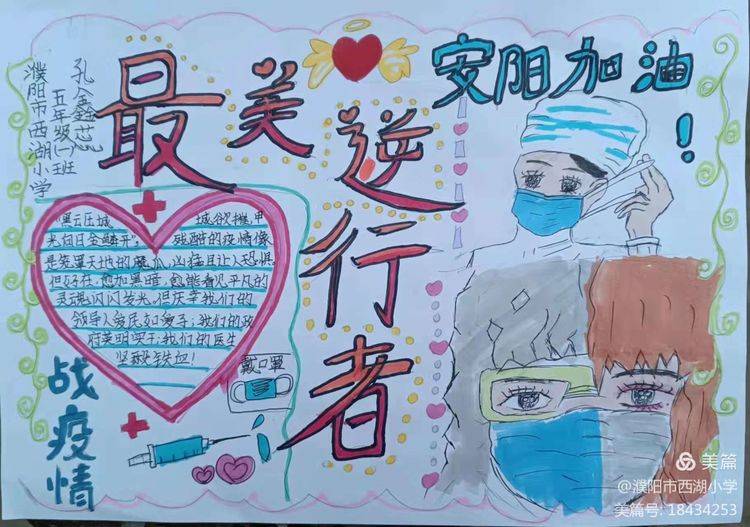 最美逆行者
安阳加油！
濮阳市西湖小学
五年级(一)班
孔鑫蕊
"黑云压城 城欲摧,甲
光向日金鳞开"。 残酷的疫情像
是笼罩天地的魔爪,凶猛且让人恐惧
但好在,愈加黑暗,愈能看见平凡的
灵魂闪闪发光,但庆幸我们的
领导人爱民如爱子;我们的政
府英明果干;我们的医生
坚毅铁血!
戴口罩
战疫情
美篇
@濮阳市西湖小学
美篇号: 18434253